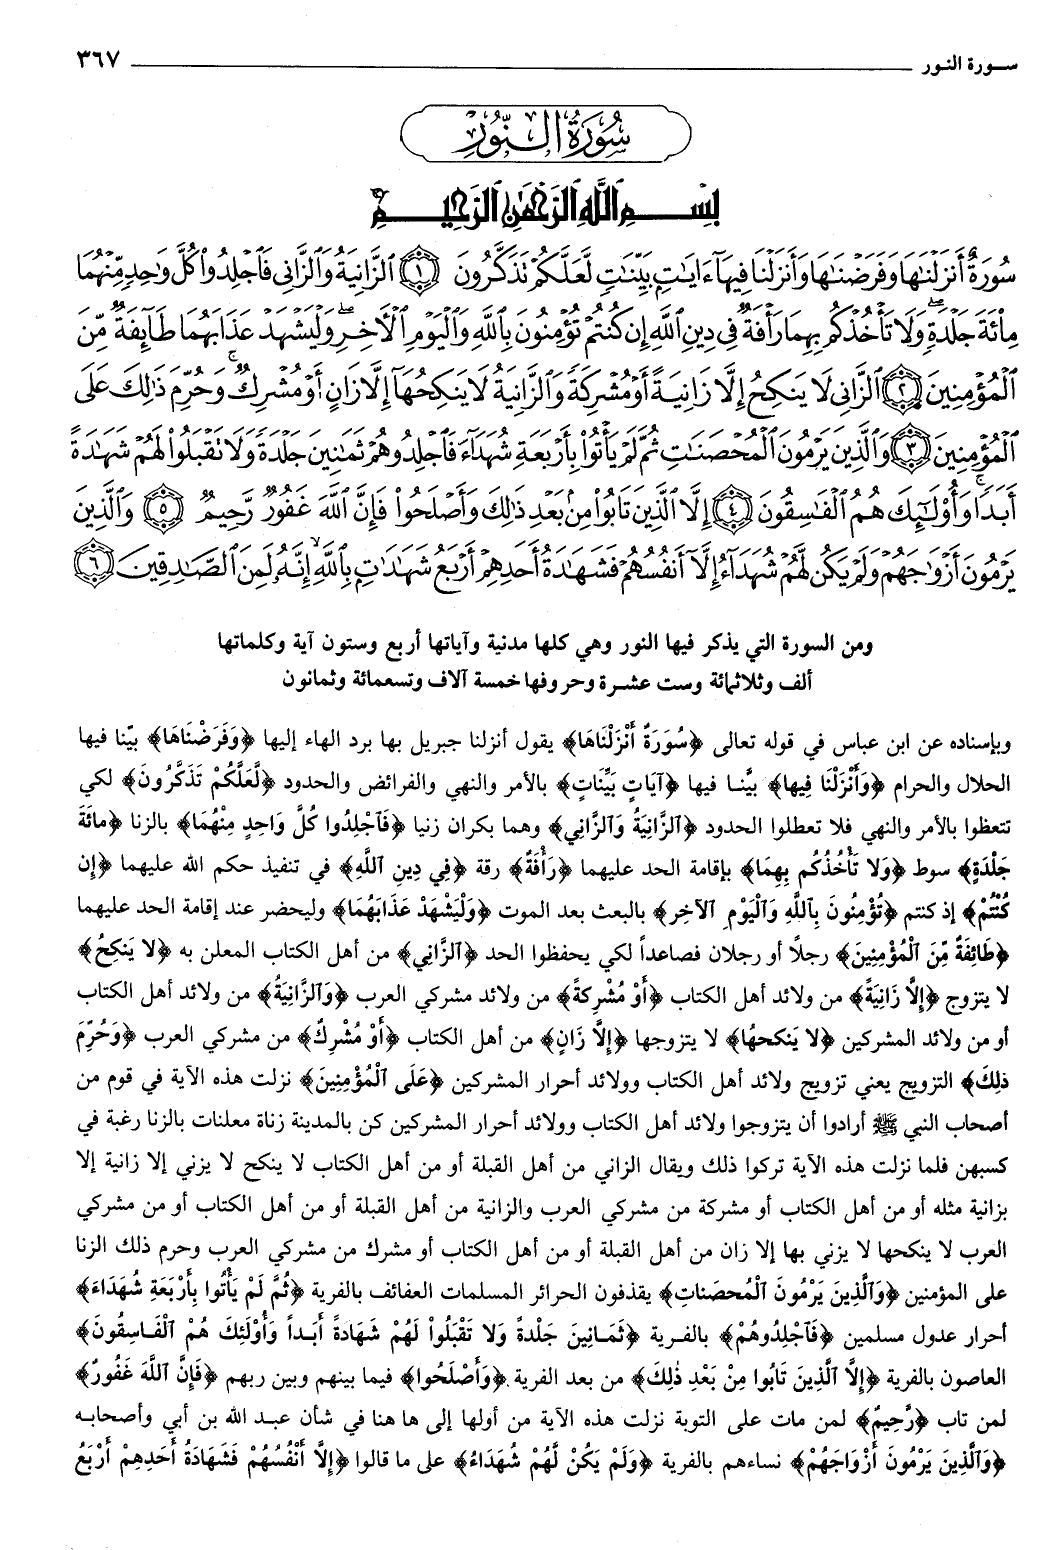 سورة النور ٣٦٧
سُورَةُ النُّورِ
بِسْمِ ٱللَّهِ ٱلرَّحْمَٰنِ ٱلرَّحِيمِ
سُورَةٌ أَنزَلْنَٰهَا وَفَرَضْنَٰهَا وَأَنزَلْنَا فِيهَآ ءَايَٰتٍۭ بَيِّنَٰتٍ لَّعَلَّكُمْ تَذَكَّرُونَ ١ ٱلزَّانِيَةُ وَٱلزَّانِى فَٱجْلِدُوا۟ كُلَّ وَٰحِدٍ مِّنْهُمَا
مِا۟ئَةَ جَلْدَةٍ ۖ وَلَا تَأْخُذْكُم بِهِمَا رَأْفَةٌ فِى دِينِ ٱللَّهِ إِن كُنتُمْ تُؤْمِنُونَ بِٱللَّهِ وَٱلْيَوْمِ ٱلْءَاخِرِ ۖ وَلْيَشْهَدْ عَذَابَهُمَا طَآئِفَةٌ مِّنَ
ٱلْمُؤْمِنِينَ ٢ ٱلزَّانِى لَا يَنكِحُ إِلَّا زَانِيَةً أَوْ مُشْرِكَةً وَٱلزَّانِيَةُ لَا يَنكِحُهَآ إِلَّا زَانٍ أَوْ مُشْرِكٌ ۚ وَحُرِّمَ ذَٰلِكَ عَلَى
ٱلْمُؤْمِنِينَ ٣ وَٱلَّذِينَ يَرْمُونَ ٱلْمُحْصَنَٰتِ ثُمَّ لَمْ يَأْتُوا۟ بِأَرْبَعَةِ شُهَدَآءَ فَٱجْلِدُوهُمْ ثَمَٰنِينَ جَلْدَةً وَلَا تَقْبَلُوا۟ لَهُمْ شَهَٰدَةً
أَبَدًا ۚ وَأُو۟لَٰٓئِكَ هُمُ ٱلْفَٰسِقُونَ ٤ إِلَّا ٱلَّذِينَ تَابُوا۟ مِنۢ بَعْدِ ذَٰلِكَ وَأَصْلَحُوا۟ فَإِنَّ ٱللَّهَ غَفُورٌ رَّحِيمٌ ٥ وَٱلَّذِينَ
يَرْمُونَ أَزْوَٰجَهُمْ وَلَمْ يَكُن لَّهُمْ شُهَدَآءُ إِلَّآ أَنفُسُهُمْ فَشَهَٰدَةُ أَحَدِهِمْ أَرْبَعُ شَهَٰدَٰتٍۭ بِٱللَّهِ ۙ إِنَّهُۥ لَمِنَ ٱلصَّٰدِقِينَ ٦
ومن السورة التي يذكر فيها النور وهي كلها مدنية وآياتها أربع وستون آية وكلماتها
ألف وثلاثمائة وست عشرة وحروفها خمسة آلاف وتسعمائة وثمانون
وبإسناده عن ابن عباس في قوله تعالى ﴿سُورَةٌ أَنْزَلْنَاهَا﴾ يقول أنزلنا جبريل بها برد الهاء إليها ﴿وَفَرَضْنَاهَا﴾ بيّنا فيها
الحلال والحرام ﴿وَأَنْزَلْنَا فِيهَا﴾ بيَّنا فيها ﴿آيَاتٍ بَيِّنَاتٍ﴾ بالأمر والنهي والفرائض والحدود ﴿لَّعَلَّكُمْ تَذَكَّرُونَ﴾ لكي
تتعظوا بالأمر والنهي فلا تعطلوا الحدود ﴿ٱلزَّانِيَةُ وَٱلزَّانِي﴾ وهما بكران زنيا ﴿فَٱجْلِدُوا كُلَّ وَاحِدٍ مِنْهُمَا﴾ بالزنا ﴿مائَةَ
جَلْدَةٍ﴾ سوط ﴿وَلَا تَأْخُذْكُم بِهِمَا﴾ بإقامة الحد عليهما ﴿رَأْفَةٌ﴾ رقة ﴿فِي دِينِ ٱللَّهِ﴾ في تنفيذ حكم الله عليهما ﴿إِن
كُنْتُمْ﴾ إذ كنتم ﴿تُؤْمِنُونَ بِٱللَّهِ وَٱلْيَوْمِ ٱلآخِرِ﴾ بالبعث بعد الموت ﴿وَلْيَشْهَدْ عَذَابَهُمَا﴾ وليحضر عند إقامة الحد عليهما
﴿طَائِفَةٌ مِّنَ ٱلْمُؤْمِنِينَ﴾ رجلاً أو رجلان فصاعداً لكي يحفظوا الحد ﴿ٱلزَّانِي﴾ من أهل الكتاب المعلن به ﴿لا يَنكِحُ﴾
لا يتزوج ﴿إِلَّا زَانِيَةً﴾ من ولائد أهل الكتاب ﴿أَوْ مُشْرِكةً﴾ من ولائد مشركي العرب ﴿وَٱلزَّانِيَةُ﴾ من ولائد أهل الكتاب
أو من ولائد المشركين ﴿لا يَنكحهَا﴾ لا يتزوجها ﴿إِلَّا زَانٍ﴾ من أهل الكتاب ﴿أَوْ مُشْرِكٌ﴾ من مشركي العرب ﴿وَحُرِّمَ
ذلِكَ﴾ التزويج يعني تزويج ولائد أهل الكتاب وولائد أحرار المشركين ﴿عَلَى ٱلْمُؤْمِنِينَ﴾ نزلت هذه الآية في قوم من
أصحاب النبي ﷺ أرادوا أن يتزوجوا ولائد أهل الكتاب وولائد أحرار المشركين كن بالمدينة زناة معلنات بالزنا رغبة في
كسبهن فلما نزلت هذه الآية تركوا ذلك ويقال الزاني من أهل القبلة أو من أهل الكتاب لا ينكح لا يزني إلا زانية إلا
بزانية مثله أو من أهل الكتاب أو مشركة من مشركي العرب والزانية من أهل القبلة أو من أهل الكتاب أو من مشركي
العرب لا ينكحها لا يزني بها إلا زان من أهل القبلة أو من أهل الكتاب أو مشرك من مشركي العرب وحرم ذلك الزنا
على المؤمنين ﴿وَٱلَّذِينَ يَرْمُونَ ٱلْمُحصَناتِ﴾ يقذفون الحرائر المسلمات العفائف بالفرية ﴿ثُمَّ لَمْ يَأْتُوا بِأَرْبَعَةِ شُهَدَاءَ﴾
أحرار عدول مسلمين ﴿فَٱجْلِدُوهُمْ﴾ بالفرية ﴿ثَمَانِينَ جَلْدةً وَلا تَقْبَلُوا لَهُمْ شَهَادةً أَبَداً وَأُوْلَئِكَ هُمْ ٱلْفَاسِقُونَ﴾
العاصون بالفرية ﴿إِلَّا ٱلَّذِينَ تَابُوا مِنْ بَعْدِ ذٰلِكَ﴾ من بعد الفرية ﴿وَأَصْلَحُوا﴾ فيما بينهم وبين ربهم ﴿فَإِنَّ ٱللَّهَ غَفُورٌ﴾
لمن تاب ﴿رَّحِيمٌ﴾ لمن مات على التوبة نزلت هذه الآية من أولها إلى ها هنا في شأن عبد الله بن أبي وأصحابه
﴿وَٱلَّذِينَ يَرْمُونَ أَزْوَاجَهُمْ﴾ نساءهم بالفرية ﴿وَلَمْ يَكُنْ لَّهُمْ شُهَدَاءُ﴾ على ما قالوا ﴿إِلَّا أَنْفُسُهُمْ فَشَهَادَةُ أَحَدِهِمْ أَرْبَعُ